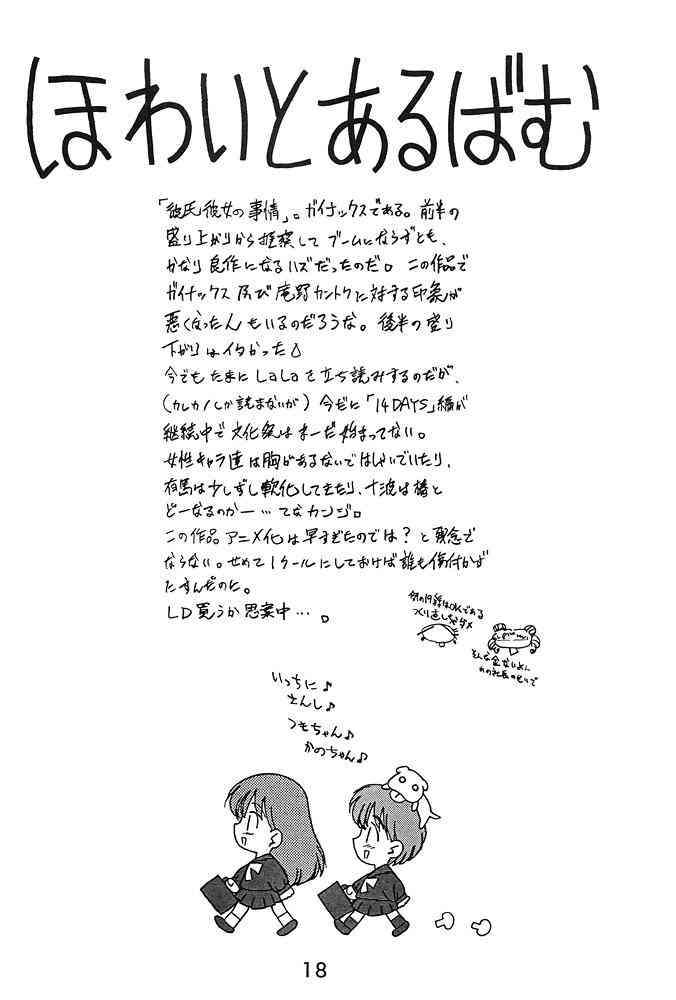 ほわいとあるばむ
「彼氏彼女の事情」。ガイナックスである。前半の
盛り上がりから推察して ブームにならずとも、
かなり良作になるハズだったのだ。この作品で
ガイナックス及び庵野カントクに対する印象が
悪くなったんもいるのだろうな。後半の盛り
下がりはイタかった
今でもたまにLaLaを立ち読みするのだが、
(カレカノしか読まないが) 今だに「14DAYS」編が
継続中で文化祭はまーだ始まってない。
女性キャラ達は胸があるないではしゃいでいたり、
有馬は少しずつ軟化してきたり、十波は椿と
どーなるのかー…てなカンジ。
この作品アニメ化は早すぎたのでは？と残念で
ならない。せめて1クールにしておけば誰も傷付かず
にすんだのに。
LD買うか思案中…。
19話はOKである
つくり直し
そんな金ないよん
社長のせいで
いっちに♪
さんし♪
つもちゃん♪
かのちゃん♪
18